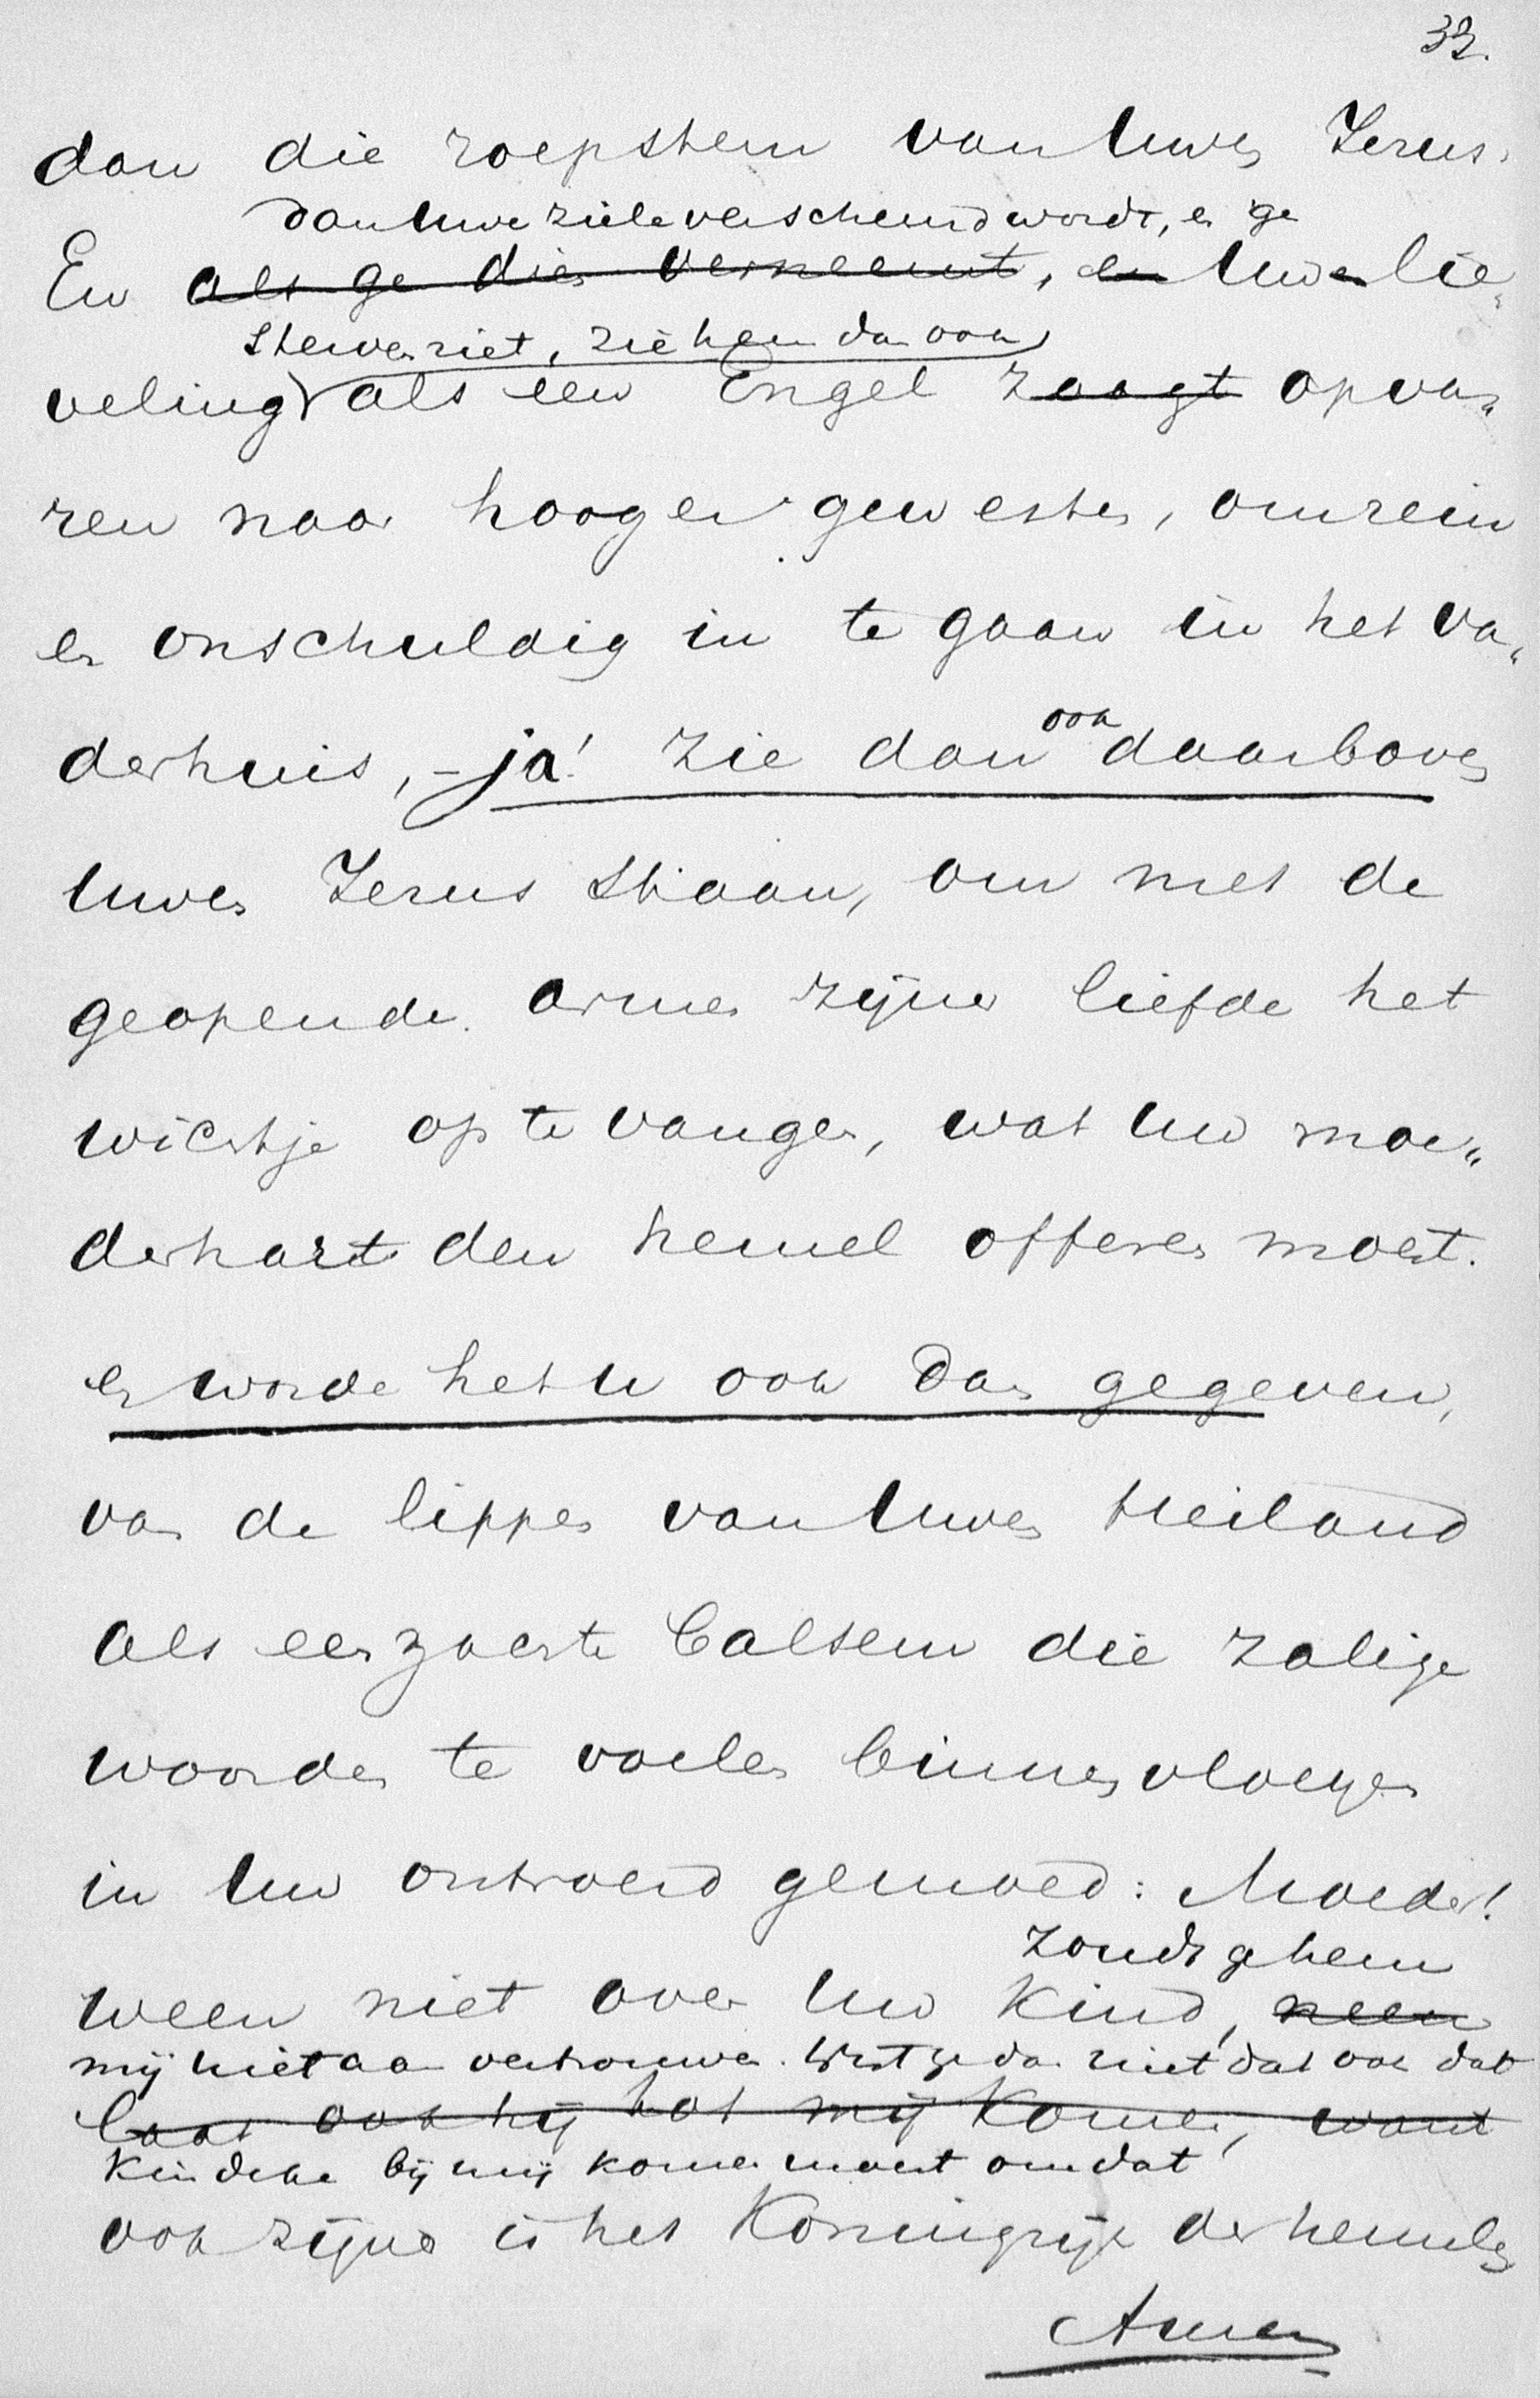 32.
dan die roepstem van Uwen Jezus.
dan Uwe ziele verscheurd wordt, en ge
En als ge dien verneemt, en Uwen lie„
sterven ziet, zie hem dan ook
veling als een Engel zaagt opva„
ren naar hooger gewesten, om rein
en onschuldig in te gaan in het Va„
derhuis, – ja! zie dan ook daarboven
Uwen Jezus staan, om met de
geopende armen zijner liefde het
wichtje op te vangen, wat Uw moe„
derhart den hemel offeren moest.
en worde het U ook dan gegeven,
van de lippen van Uwen Heiland
als een zachte balsem die zalige
woorden te voelen binnenvloeyen
in Uw ontroerd gemoed: Moeder!
zoudt ge hem
ween niet over Uw kind, neen
mij niet aan vertrouwen. Wist ge dan niet dat ook dat
laat ook hij tot mij komen, want
kindeke bij mij komen moest omdat
ook zijns is het Koningrijk der hemelen
Amen